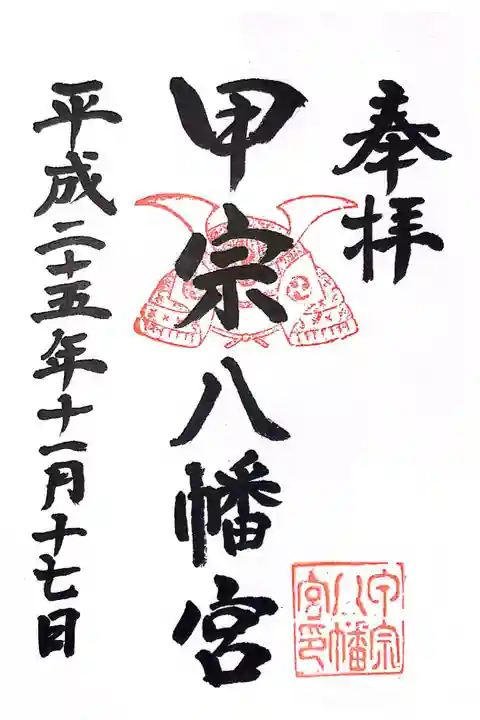 奉拝
甲宗八幡宮
平成二十五年十一月十七日
甲宗
八幡
宮印